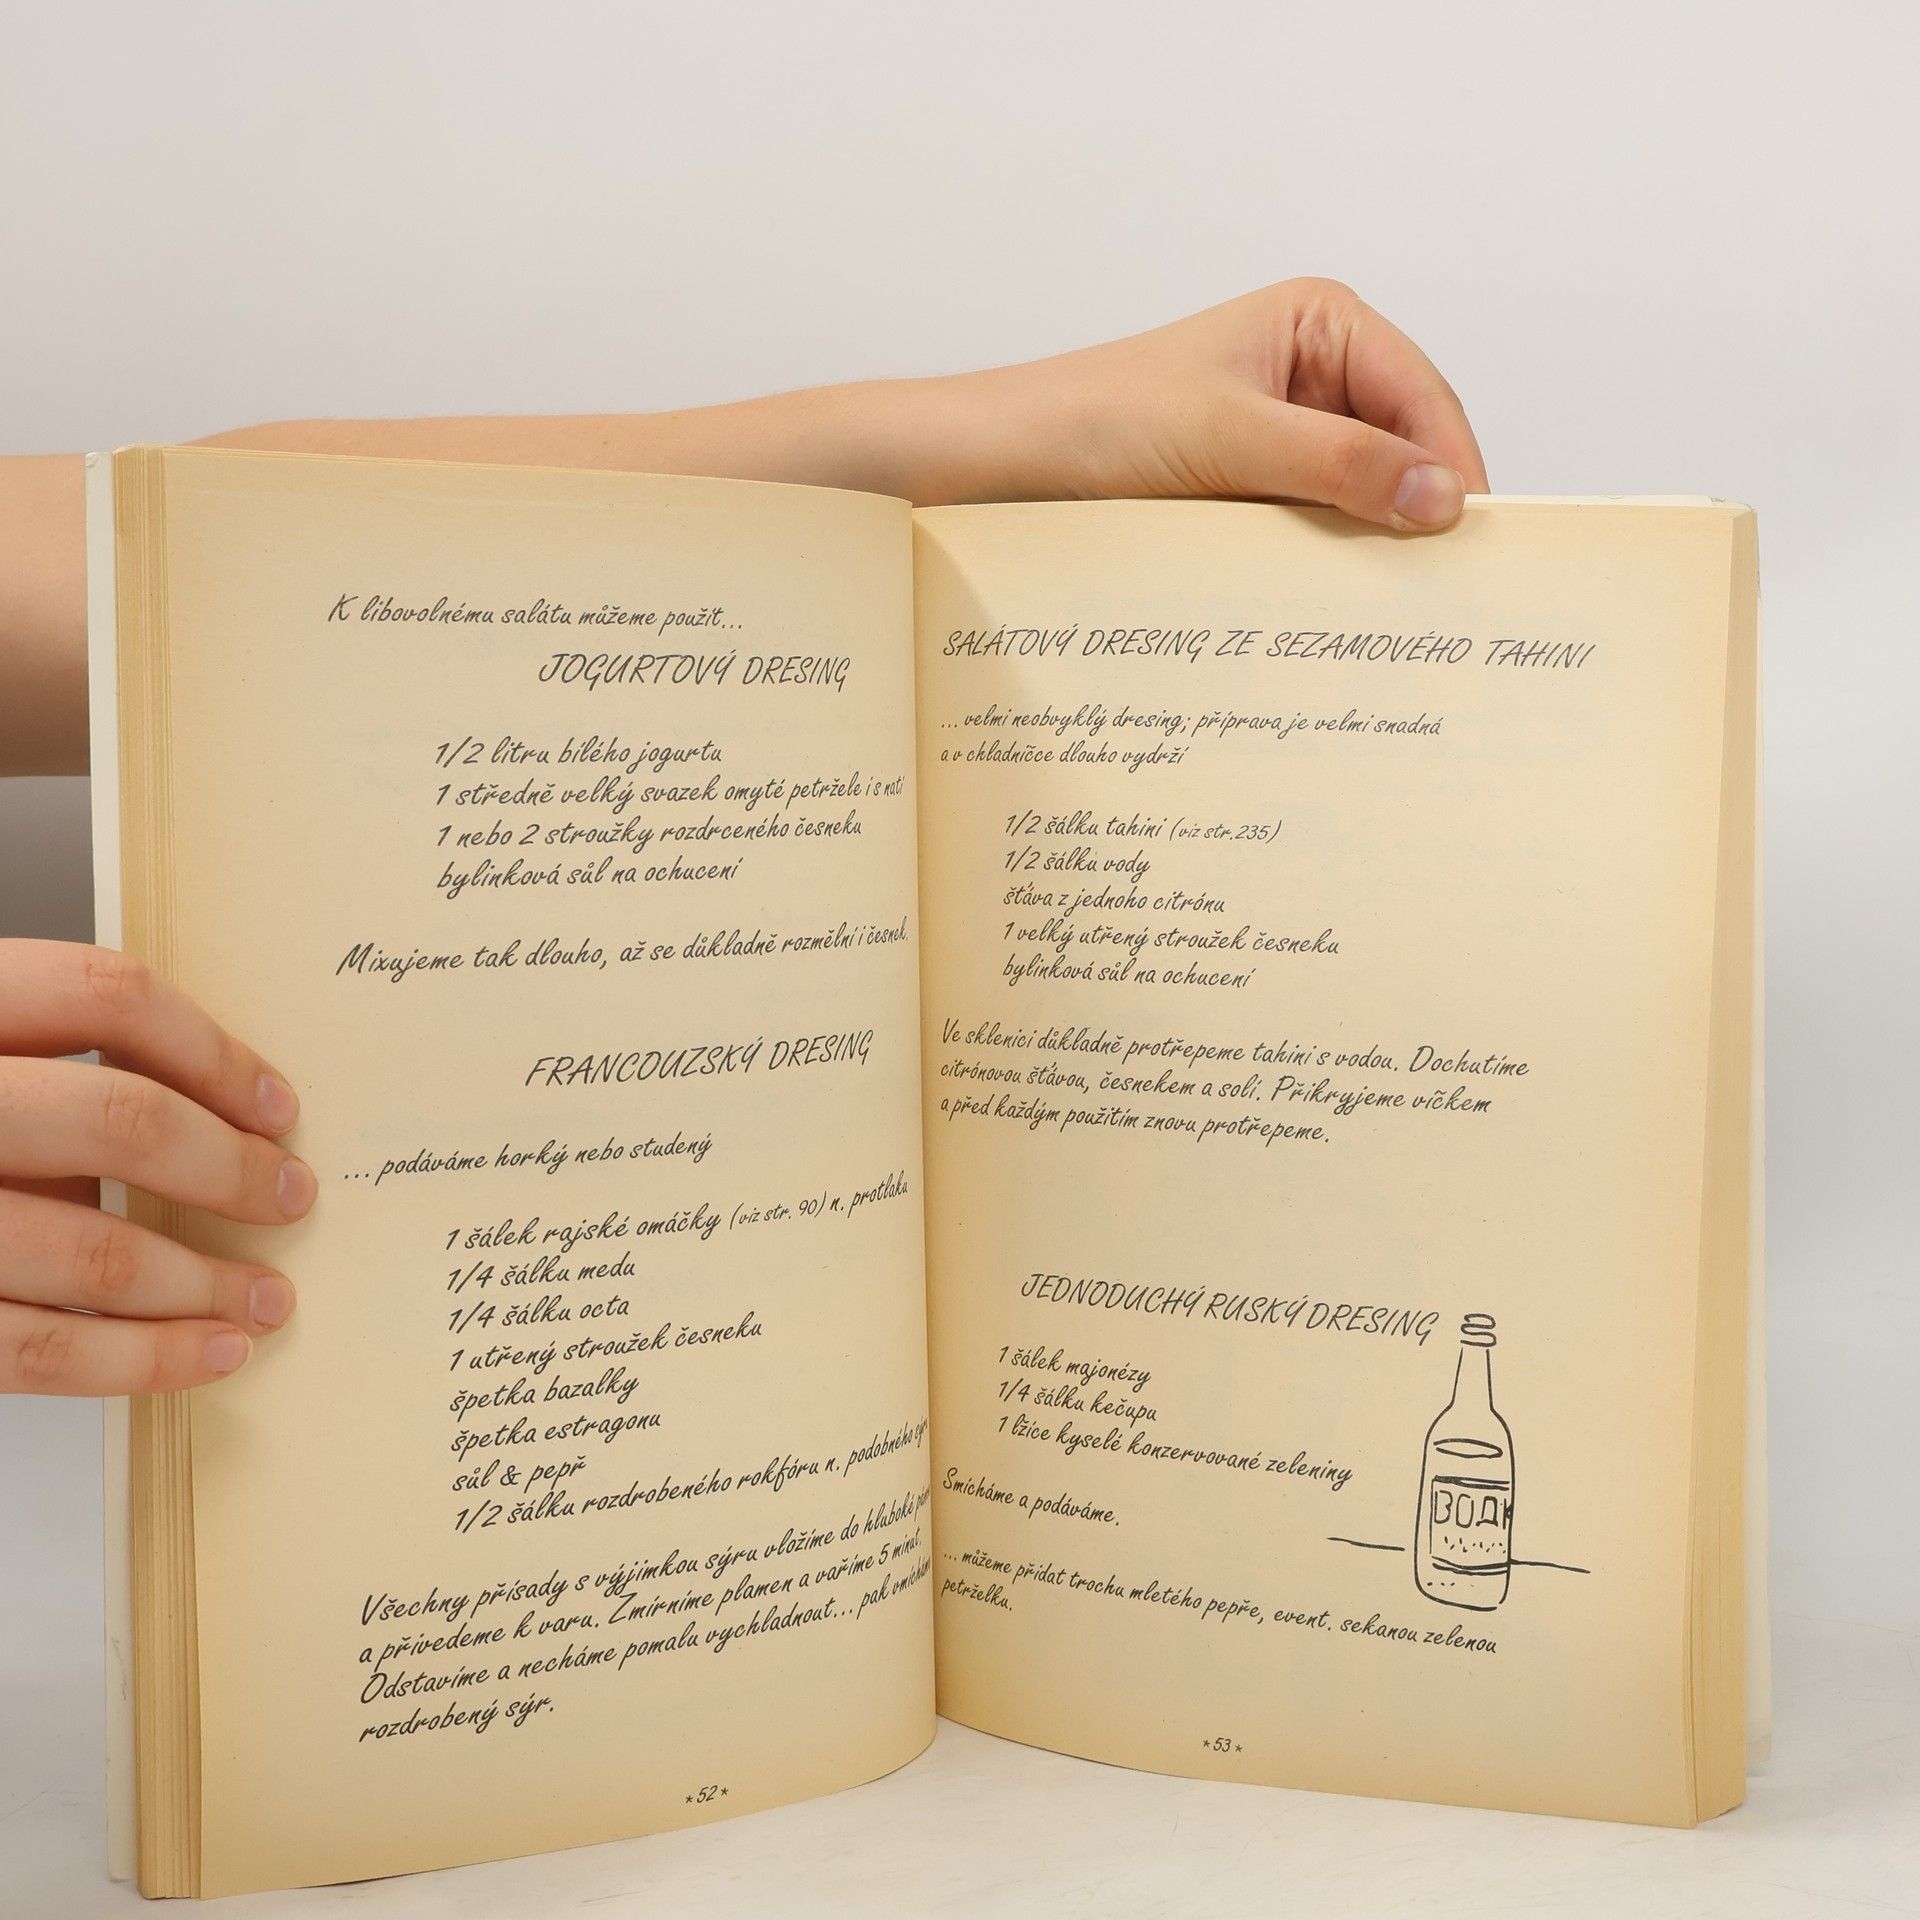 K libovolnému salátu můžeme použít...
JOGURTOVÝ DRESING
1/2 litru bílého jogurtu
1 středně velký svazek omyté petržele i s natí
1 nebo 2 stroužky rozdrceného česneku
bylinková sůl na ochucení
Mixujeme tak dlouho, až se důkladně rozmělní i česnek.
FRANCOUZSKÝ DRESING
... podáváme horký nebo studený
1 šálek rajské omáčky (viz str. 90) n. protlaku
1/4 šálku medu
1/4 šálku octa
1 utřený stroužek česneku
špetka bazalky
špetka estragonu
sůl & pepř
1/2 šálku rozdrobeného rokfóru n. podobného
Všechny přísady s výjimkou sýru vložíme do hluboké
a přivedeme k varu. Zmírníme plamen a vaříme 5 minut.
Odstavíme a necháme pomalu vychladnout... pak vmícháme
rozdrobený sýr.
*52*
SALÁTOVÝ DRESING ZE SEZAMOVÉHO TAHINI
... velmi neobvyklý dresing; příprava je velmi snadná
a v chladničce dlouho vydrží
1/2 šálku tahini (viz str.235)
1/2 šálku vody
šťáva z jednoho citrónu
1 velký utřený stroužek česneku
bylinková sůl na ochucení
Ve sklenici důkladně protřepeme tahini s vodou. Dochutíme
citrónovou šťávou, česnekem a solí. Přikryjeme víčkem
a před každým použitím znovu protřepeme.
JEDNODUCHÝ RUSKÝ DRESING
1 šálek majonézy
1/4 šálku kečupu
1 lžíce kyselé konzervované zeleniny
ВОДК
Smícháme a podáváme.
... můžeme přidat trochu mletého pepře, event. sekanou zelenou
petrželku.
*53*